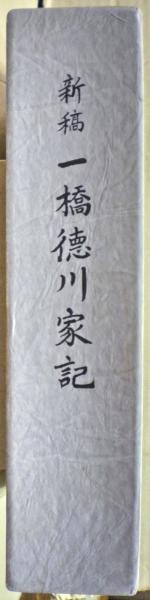 新稿 一橋徳川家記